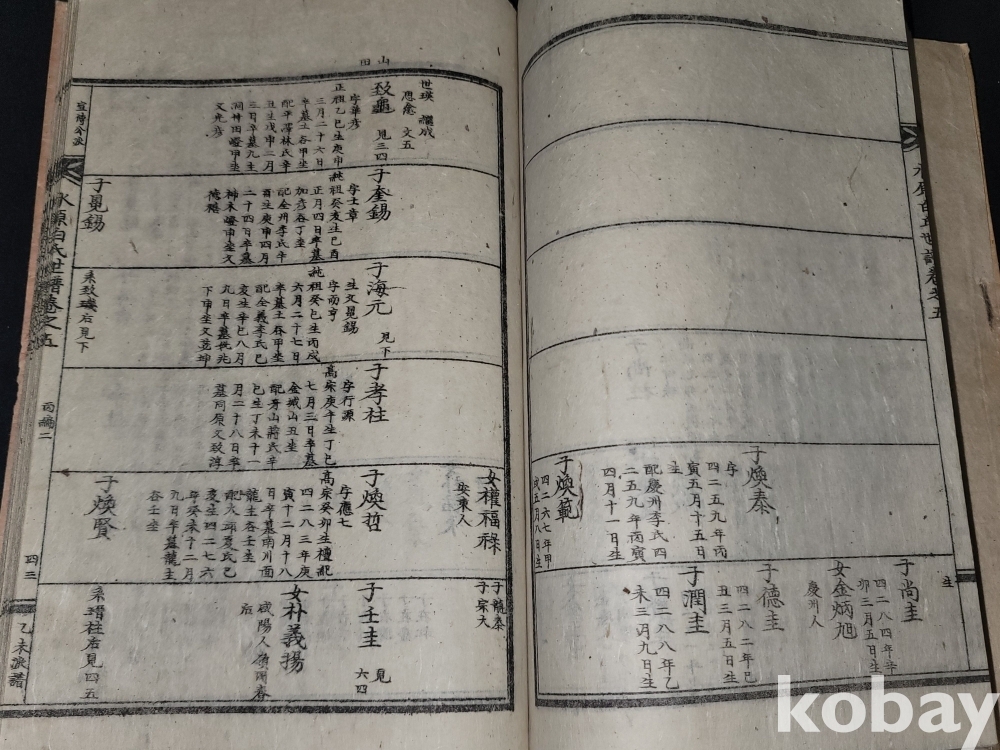 子煥泰
字
四二五九年丙
寅五月十五日
生
配慶州李氏四
二五九年丙寅
四月十一日生
子煥範
四二六七年甲
戌五月八日生
子尚圭
四二八四年辛
卯三月五日生
女金炳旭
慶州人
子德圭
四二八二年己
丑三月五日生
子潤圭
四二八八年乙
未三月九日生
圭
山田
世瑛 繼成
應意 文五
致龜 見三四
字華彥
正祖乙巳生庚申
三月二十六日
卒墓土谷甲坐
配平澤林氏辛
丑生戊申二月
三日卒墓九主
洞柿田嶝甲坐
文光彥
子奎錫
字士章
純祖癸亥生己酉
正月四日卒墓
加彥谷丁坐
配全州李氏辛
酉生庚申四月
二十四日卒墓
柿木嶝甲坐文
德禧
子覓錫
子海元 見下
生父覓錫
字雨亨
純祖癸巳生丙戌
六月二十七日
卒墓土谷甲坐
配全義李氏己
亥生辛巳八月
九日卒墓
下甲坐文
系致璣后見下
子孝柱
字行源
高宗庚午生丁巳
七月三日卒墓
金城山丑坐
配牙山蔣氏辛
巳生丁未十一
月二十八日卒
墓同原文致淳
女權福祿
安東人
子龍泰
子宗大
子煥哲
字應七
高宗癸卯生檀紀
四二八三年庚
寅十二月十八
日卒墓南川面
龍圭谷壬坐
配大邱夏氏己
亥生四二七六
年癸未十二月
九日卒墓龍圭
谷壬坐
子煥賢
子壬圭 見六四
女朴義揚
咸陽人
后
系瑨柱后見四五
宣傳公派
水原白氏世譜卷之五
丙編二
四三
乙未派譜
水原白氏世譜卷之五
kobay